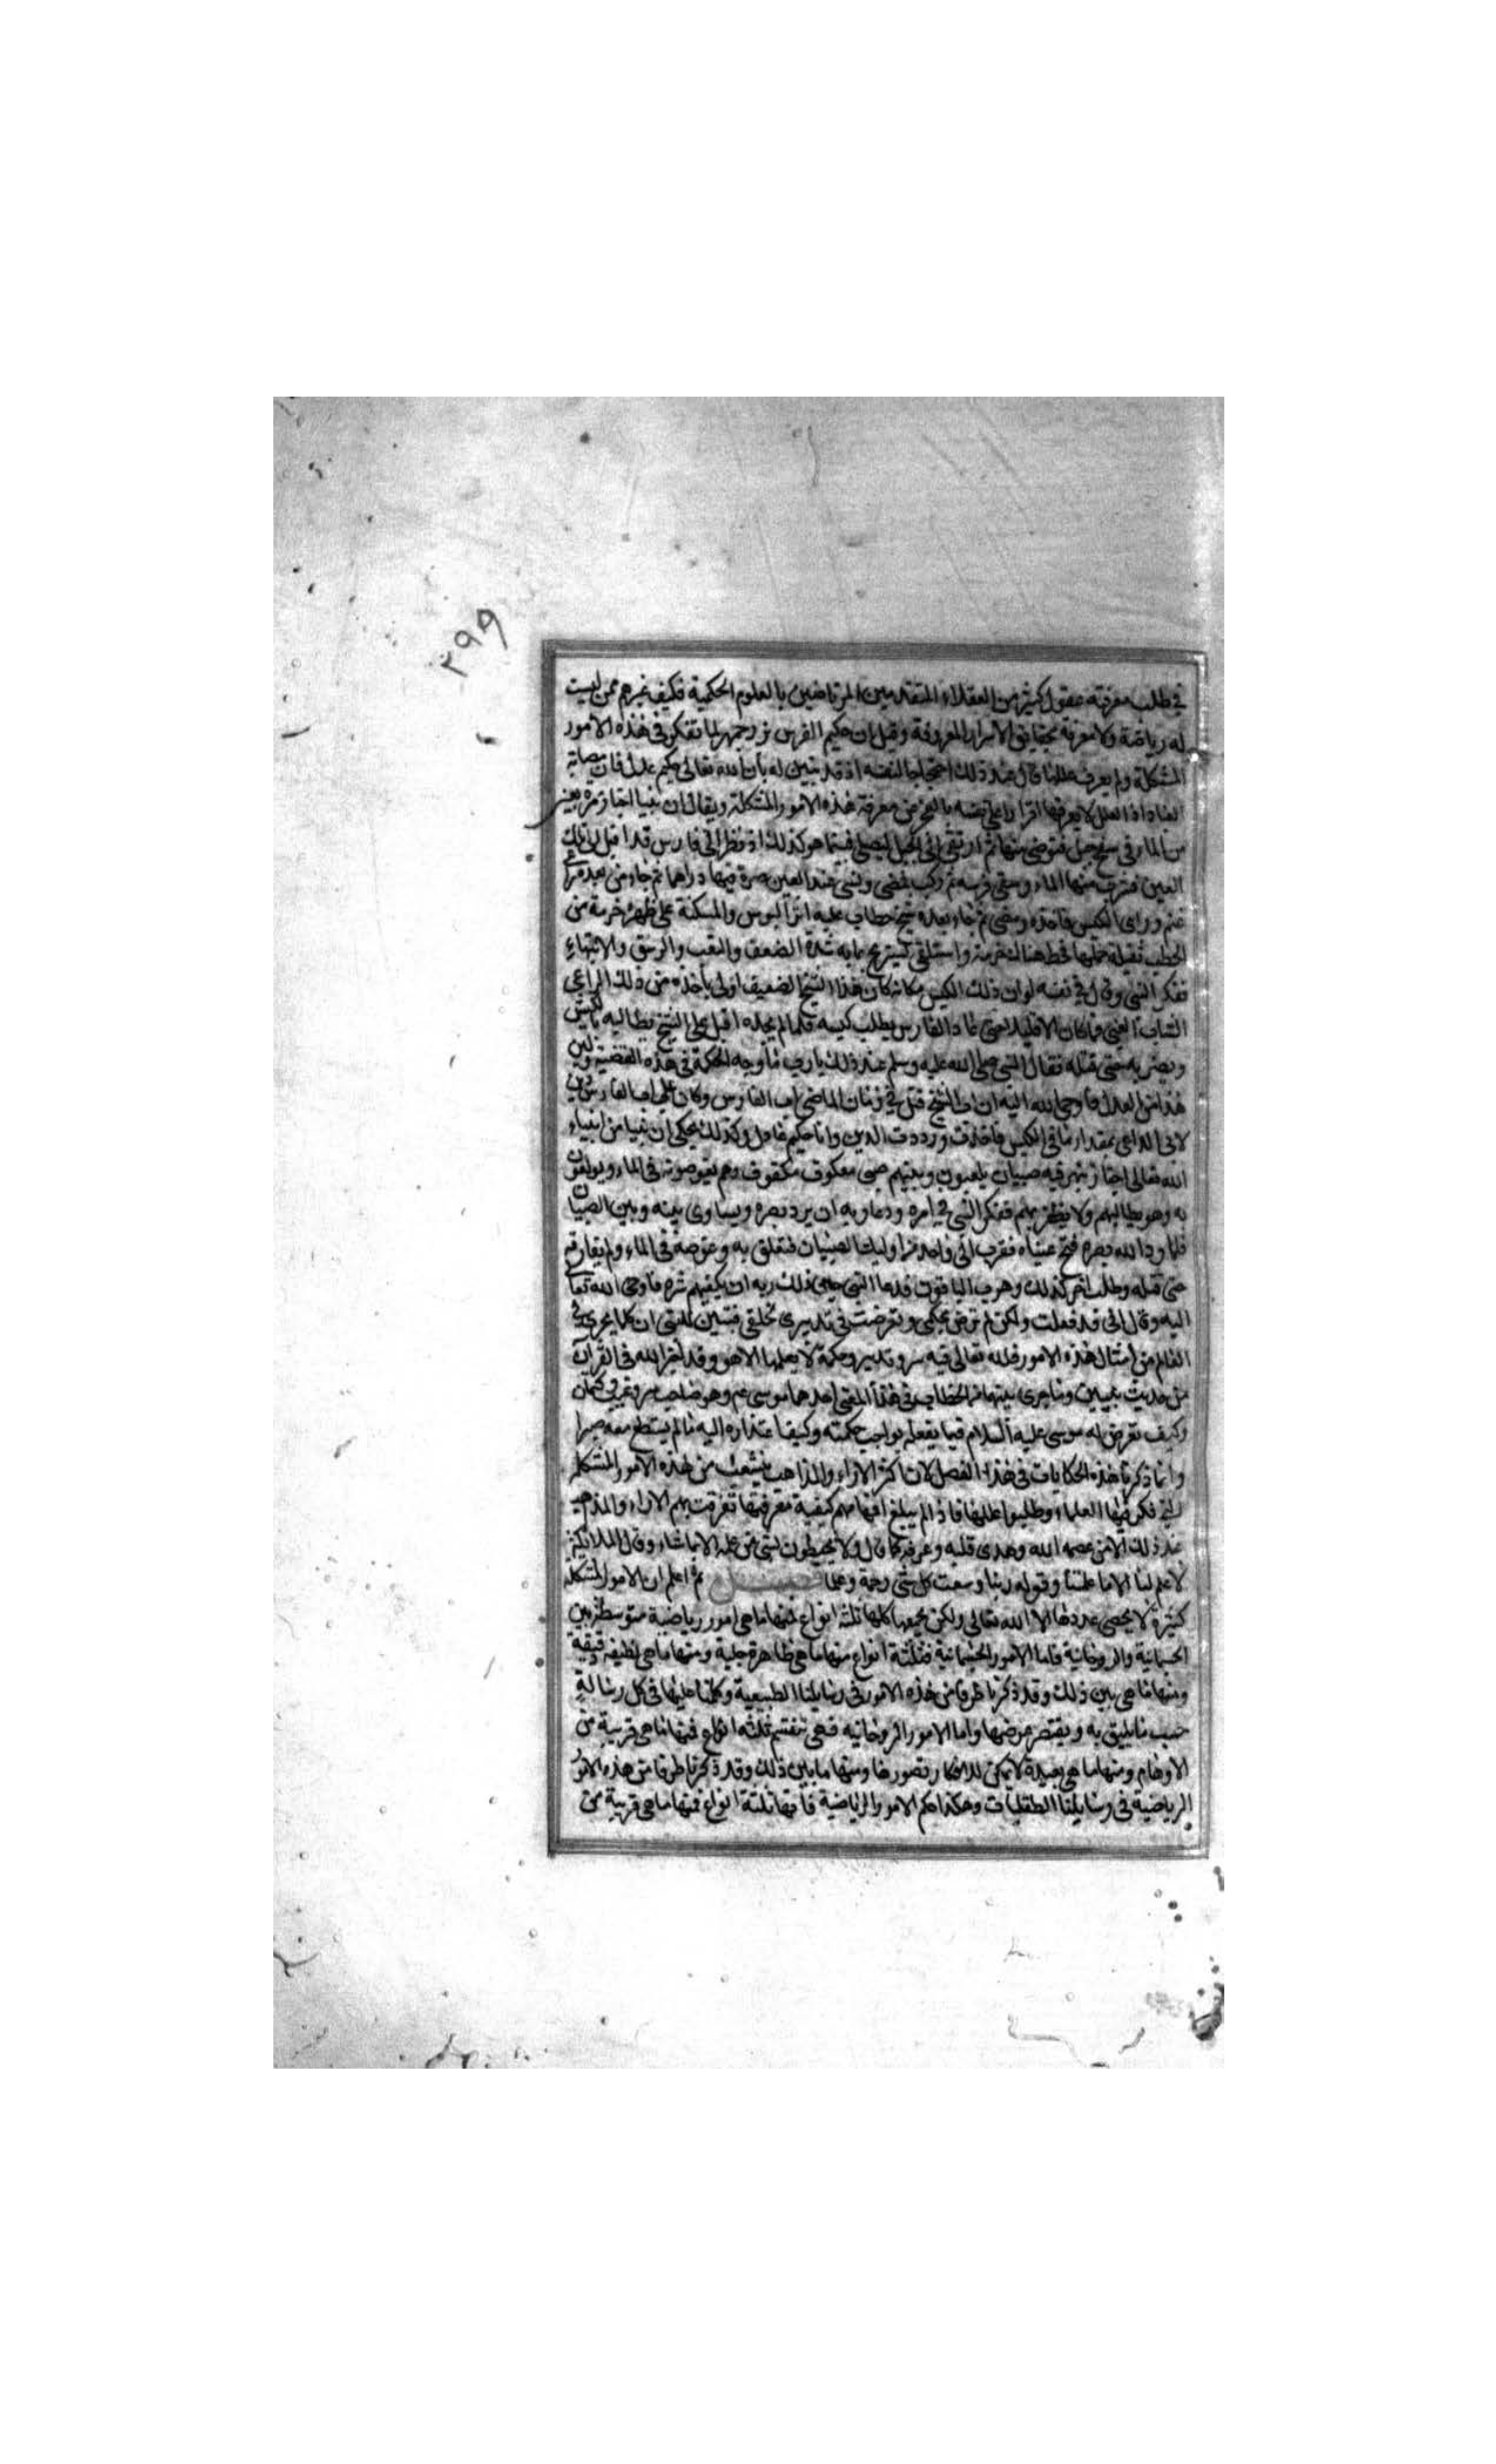 ٢٩٨
في طلب معرفته عقول كثير من العقلاء المتقدمين المرتاضين بالعلوم الحكمية فكيف غيرهم ممن ليست
له رياضة ولا معرفة بحقايق الاسرار المعروفة وقيل ان حكيم الفرس بزرجمهر لما تفكر في هذه الامور
المشكلة ولم يعرف عللها قال عند ذلك احتجاجا لنفسه اذ قد تبين له بأن الله تعالى حكيم عدل فان
العلل لا يعرفها اقرارا على نفسه بالعجز عن معرفة هذه الامور المشكلة ويقال ان نبيا اجتاز مرة بعين
من الماء في سفح جبل فتوضى منها ثم ارتقى الى الجبل ليصلي فبينما هو كذلك اذ نظر الى فارس قد اقبل الى تلك
العين فشرب منها الماء وسقى فرسه ثم ركب فمضى ونسي عند العين صرة فيها دراهم ثم جاء من بعده راعي
غنم وراى الكيس فاخذه ومضى ثم جاء بعده شيخ حطاب عليه اثر البوس والمسكنة على ظهره حزمة من
الحطب ثقيلة حملها فحط هنالك حزمته واستلقى ليستريح مما به شدة الضعف والتعب والانبهار
ففكر النبي وقال في نفسه لو ان ذلك الكيس مكانه كان هذا الشيخ الضعيف اولى بأخذه من ذلك الراعي
الشاب الغني فما كان الا قليلا حتى عاد الفارس يطلب كيسه فلما لم يجده اقبل على الشيخ يطالبه بالكيس
ويضربه حتى قتله فقال النبي صلى الله عليه وسلم عند ذلك يارب ما وجه الحكمة في هذه القضية واين
هذا من العدل فاوحى الله اليه ان اب الشيخ قتل في زمان الماضي اب الفارس وكان على اب الفارس دين
لابي الراعي بمقدار ما في الكيس فاخذت ورددت الدين وانا حكيم عادل وكذلك يحكى ان نبيا من انبياء
الله تعالى اجتاز بنهر فيه صبيان يلعبون وبينهم صبي مكفوف وهم يغوصونه في الماء ويولعون
به وهو يطالبهم ولا يظفر بهم ففكر النبي في امره ودعا ربه ان يرد بصره ويساوي بينه وبين الصبيان
فلما رد الله بصره فتح عيناه فقرب الى واحد من اوليك الصبيان فتعلق به وغوصه في الماء ولم يفارقه
حتى قتله وطلب اخر كذلك وهرب الباقون فدعا النبي ذلك ربه ان يكفيهم شره فاوحى الله تعالى
اليه وقال اني قد فعلت ولكن لم ترض بحكمي وتعرضت في تدبيري لخلقي فتبين للنبي ان كلما يجري في
العالم من امثال هذه الامور فلله تعالى فيه سر وتدبير وحكمة لا يعلمها الا هو وقد اخبر الله في القرآن
من حديث نبيين وما جرى بينهما من الخطاب في هذا المعنى احدهما موسى عم وهو صاحب
وكيف تعرض له موسى عليه السلام فيما يفعله بواجب حكمته وكيف اعتذاره اليه ما لم يستطع معه صبرا
وانما ذكرنا هذه الحكايات في هذا الفصل لان اكثر الاراء والمذاهب تشعبت من هذه الامور المشكلة
التي فكر فيها العلماء وطلبوا عللها فاذا لم يبلغ افهامهم كيفية معرفتها تفرقت بهم الاراء والمذاهب
عند ذلك الا من عصمه الله وهدى قلبه وعرفه كما قال ولا يحيطون بشيء من علمه الا بما شاء وقال الملائكة
لا علم لنا الا ما علمتنا وقوله ربنا وسعت كل شي رحمة وعلما فصل ثم اعلم ان الامور المشكلة
كثيرة لا يحصى عددها الا الله تعالى ولكن يجمعها كلها ثلثة انواع فمنها ما هي امور رياضية متوسطة بين
الجسمانية والروحانية فاما الامور الجسمانية فثلثة انواع منها ما هي ظاهرة جلية ومنها ما هي لطيفة دقيقة
ومنها ما هي بين ذلك وقد ذكرنا طرفا من هذه الامور في رسايلنا الطبيعية وكلمنا عليها في كل رسالة
حسب ما يليق به ويقتصر عرضها واما الامور الروحانية فهي تنقسم ثلثة انواع فمنها ما هي قريبة من
الاوهام ومنها ما هي بعيدة لا يمكن للافكار تصورها ومنها ما بين ذلك وقد ذكرنا طرفا من هذه الامور
الرياضية في رسايلنا العقليات وهكذا حكم الامور الرياضية فأنها ثلثة انواع فمنها ما هي قريبة من